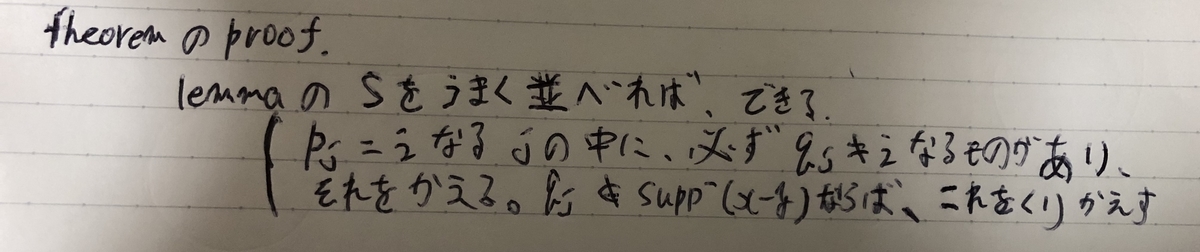 Theoremのproof.
lemmaのSをうまく並べれば、できる.
p_j = i なる j の中に、必ず q_j ≠ i なるものがあり、
それをかえる。q_j ∉ supp⁻(x-y)ならば、これをくりかえす